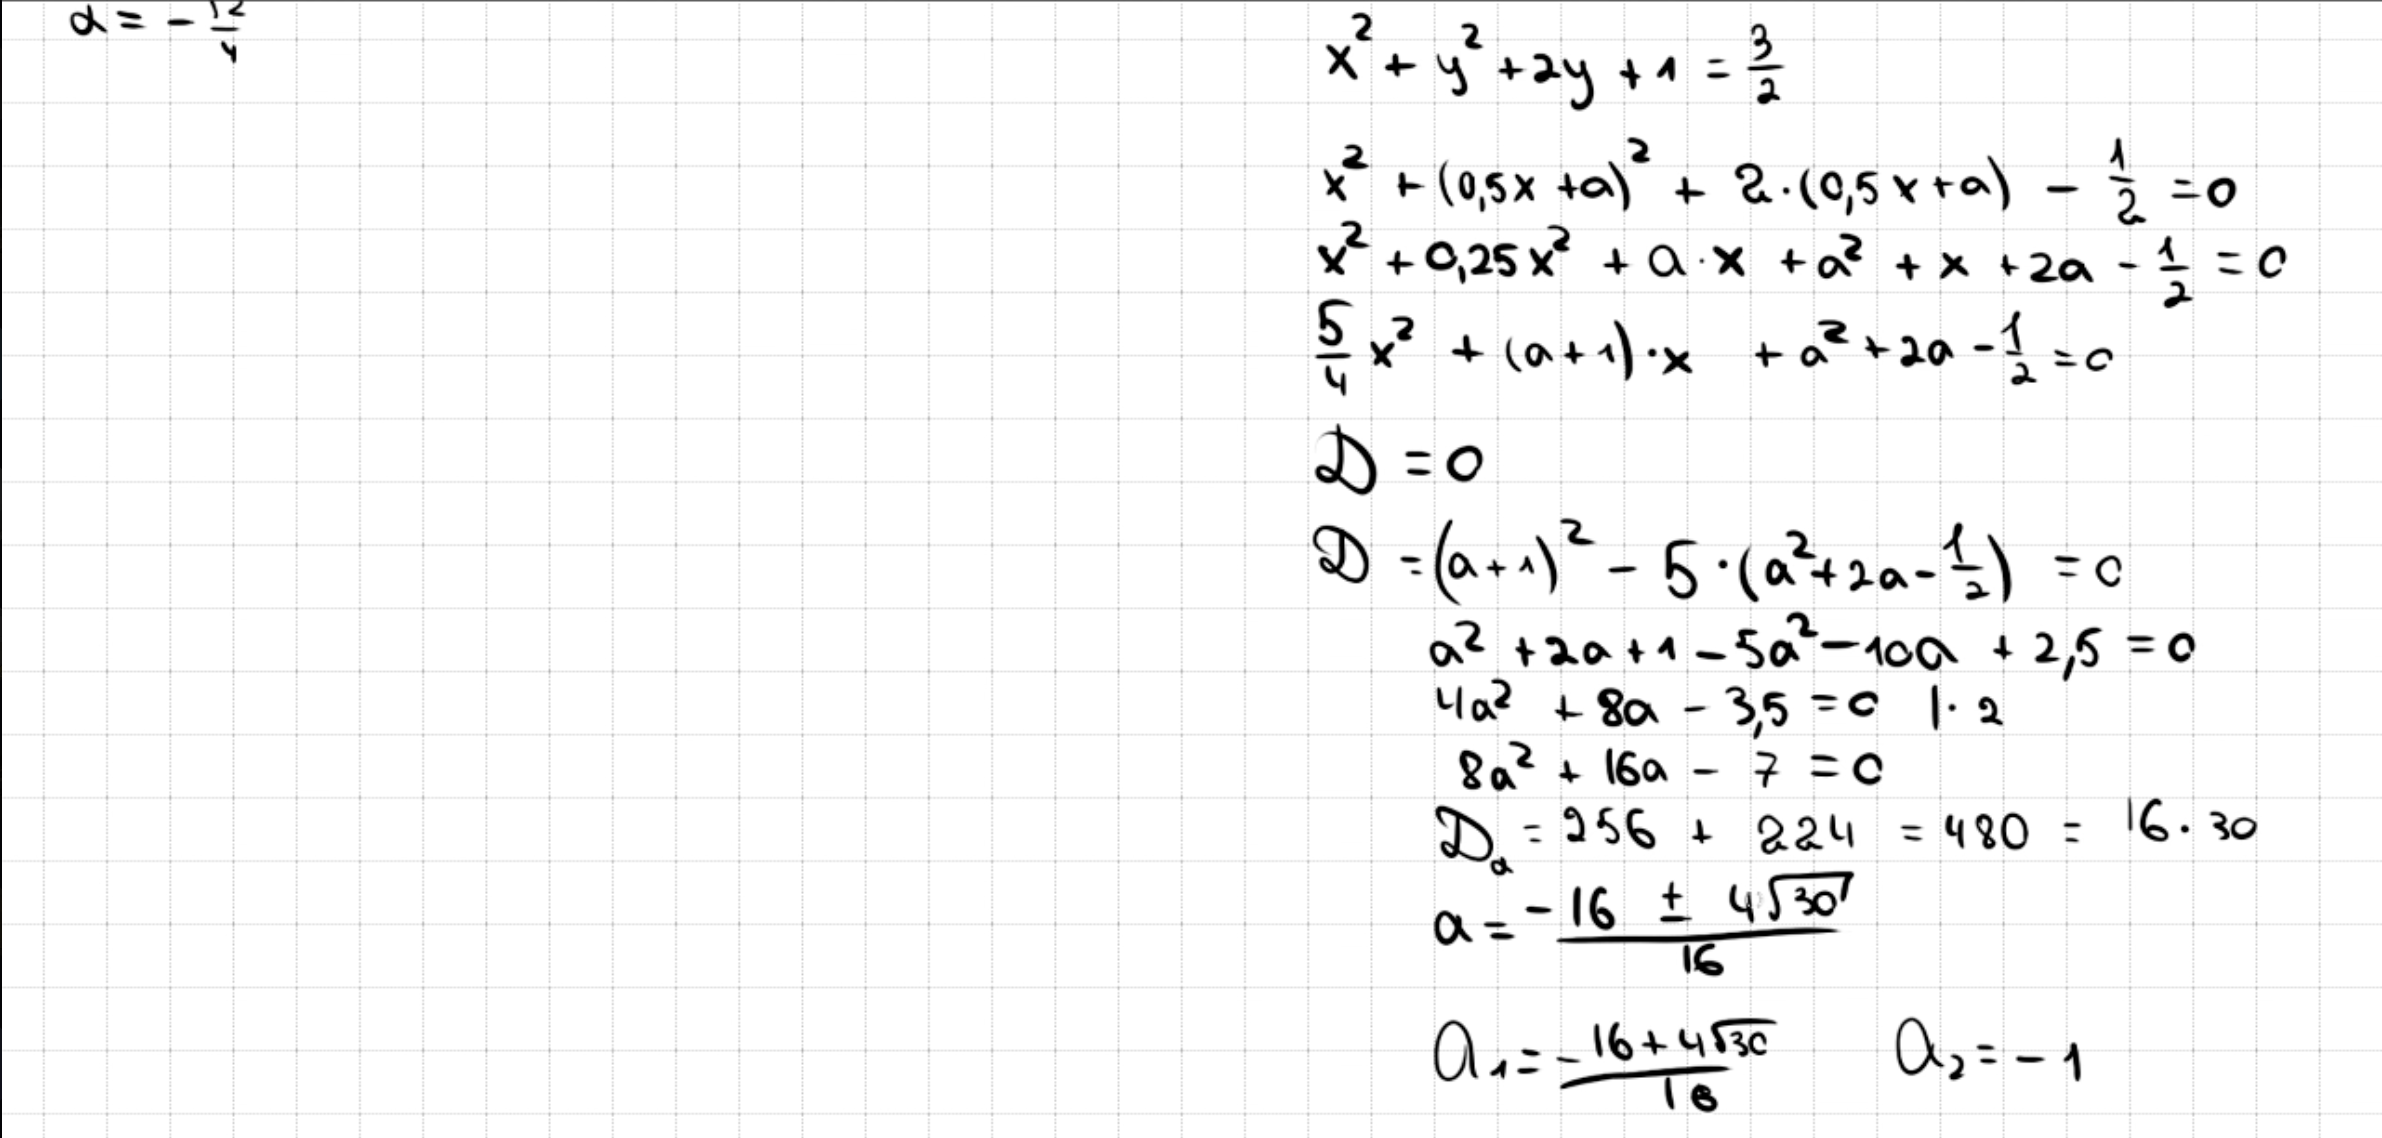 a = - 12/4
x² + y² + 2y + 1 = 3/2
x² + (0,5x + a)² + 2·(0,5x + a) - 1/2 = 0
x² + 0,25x² + a·x + a² + x + 2a - 1/2 = 0
5/4 x² + (a + 1)·x + a² + 2a - 1/2 = 0
D = 0
D = (a + 1)² - 5·(a² + 2a - 1/2) = 0
a² + 2a + 1 - 5a² - 10a + 2,5 = 0
4a² + 8a - 3,5 = 0 |· 2
8a² + 16a - 7 = 0
D₂ = 256 + 224 = 480 = 16·30
a = (-16 ± 4√30)/16
a₁ = (-16 + 4√30)/16 a₂ = -1